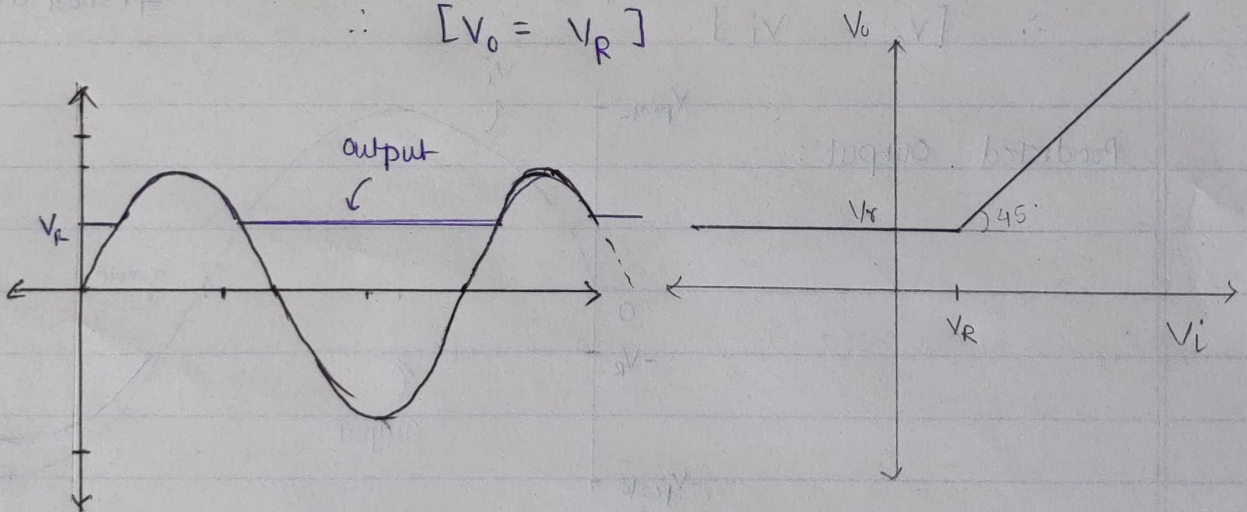 ∴ [V₀ = V_R]
V₀
output
V_R
Vr
45°
V_R
Vi